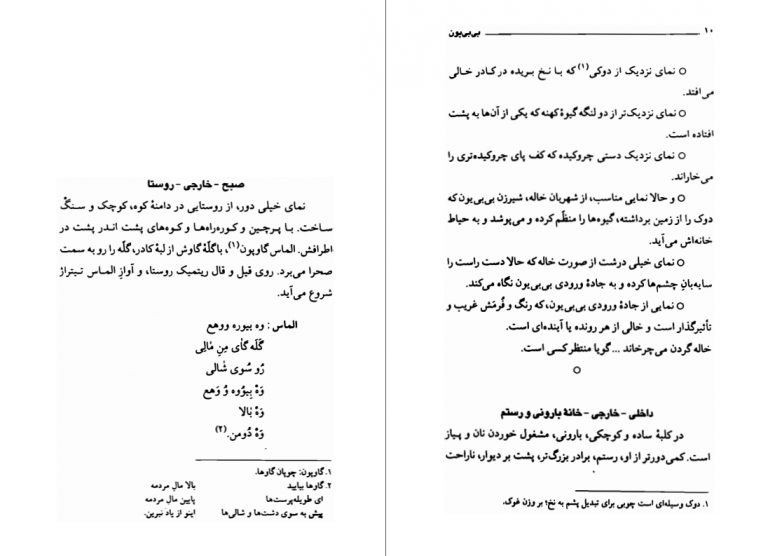 صبح - خارجی - روستا
نمای خیلی دور، از روستایی در دامنهٔ کوه، کوچک و سنگ
ساخت. با پرچین و کوره‌راه‌ها و کوه‌های پشت اندر پشت در
اطرافش. الماس گاوپون(۱)، با گلّهٔ گاوش از لبهٔ کادر، گلّه را رو به سمت
صحرا می‌برد. روی قیل و قال ریتمیک روستا، و آوازِ الماس تیتراژ
شروع می‌آید.
الماس : وه بیوره ووهع
گَلّه گای مِنِ مٰالِی
رُو سُوی شٰالی
وَهْ بِیوُوه وُ وَهع
وَهْ بٰالا
وَهْ دُومن. (۲)
۱. گاوپون: چوپان گاوها.
۲. گاوها بیایید بالا مالِ مردمه
ای طویله‌پرست‌ها پایین مالِ مردمه
پیش به سوی دشت‌ها و شالی‌ها اینو از یاد نبرین.
۱۰ بی‌بی‌یون
○ نمای نزدیک از دوکی(۱) که با نخ بریده در کادر خالی
می‌افتد.
○ نمای نزدیک‌تر از دو لنگه گیوهٔ کهنه که یکی از آن‌ها به پشت
افتاده است.
○ نمای نزدیک دستی چروکیده که کف پای چروکیده‌تری را
می‌خاراند.
○ و حالا نمایی مناسب، از شهربان خاله، شیرزن بی‌بی‌یون که
دوک را از زمین برداشته، گیوه‌ها را منظّم کرده و می‌پوشد و به حیاط
خانه‌اش می‌آید.
○ نمای خیلی درشت از صورت خاله که حالا دست راست را
سایه‌بانِ چشم‌ها کرده و به جادهٔ ورودی بی‌بی‌یون نگاه می‌کند.
○ نمایی از جادهٔ ورودی بی‌بی‌یون، که رنگ و فُرمَش غریب و
تأثیرگذار است و خالی از هر رونده یا آینده‌ای است.
خاله گردن می‌چرخاند ... گویا منتظر کسی است.
○
داخلی - خارجی - خانهٔ بارونی و رستم
در کلبهٔ ساده و کوچکی، بارونی، مشغول خوردن نان و پیاز
است. کمی دورتر از او، رستم، برادر بزرگ‌تر، پشت بر دیوار، ناراحت
۱. دوک وسیله‌ای است چوبی برای تبدیل پشم به نخ؛ بر وزن غوک.